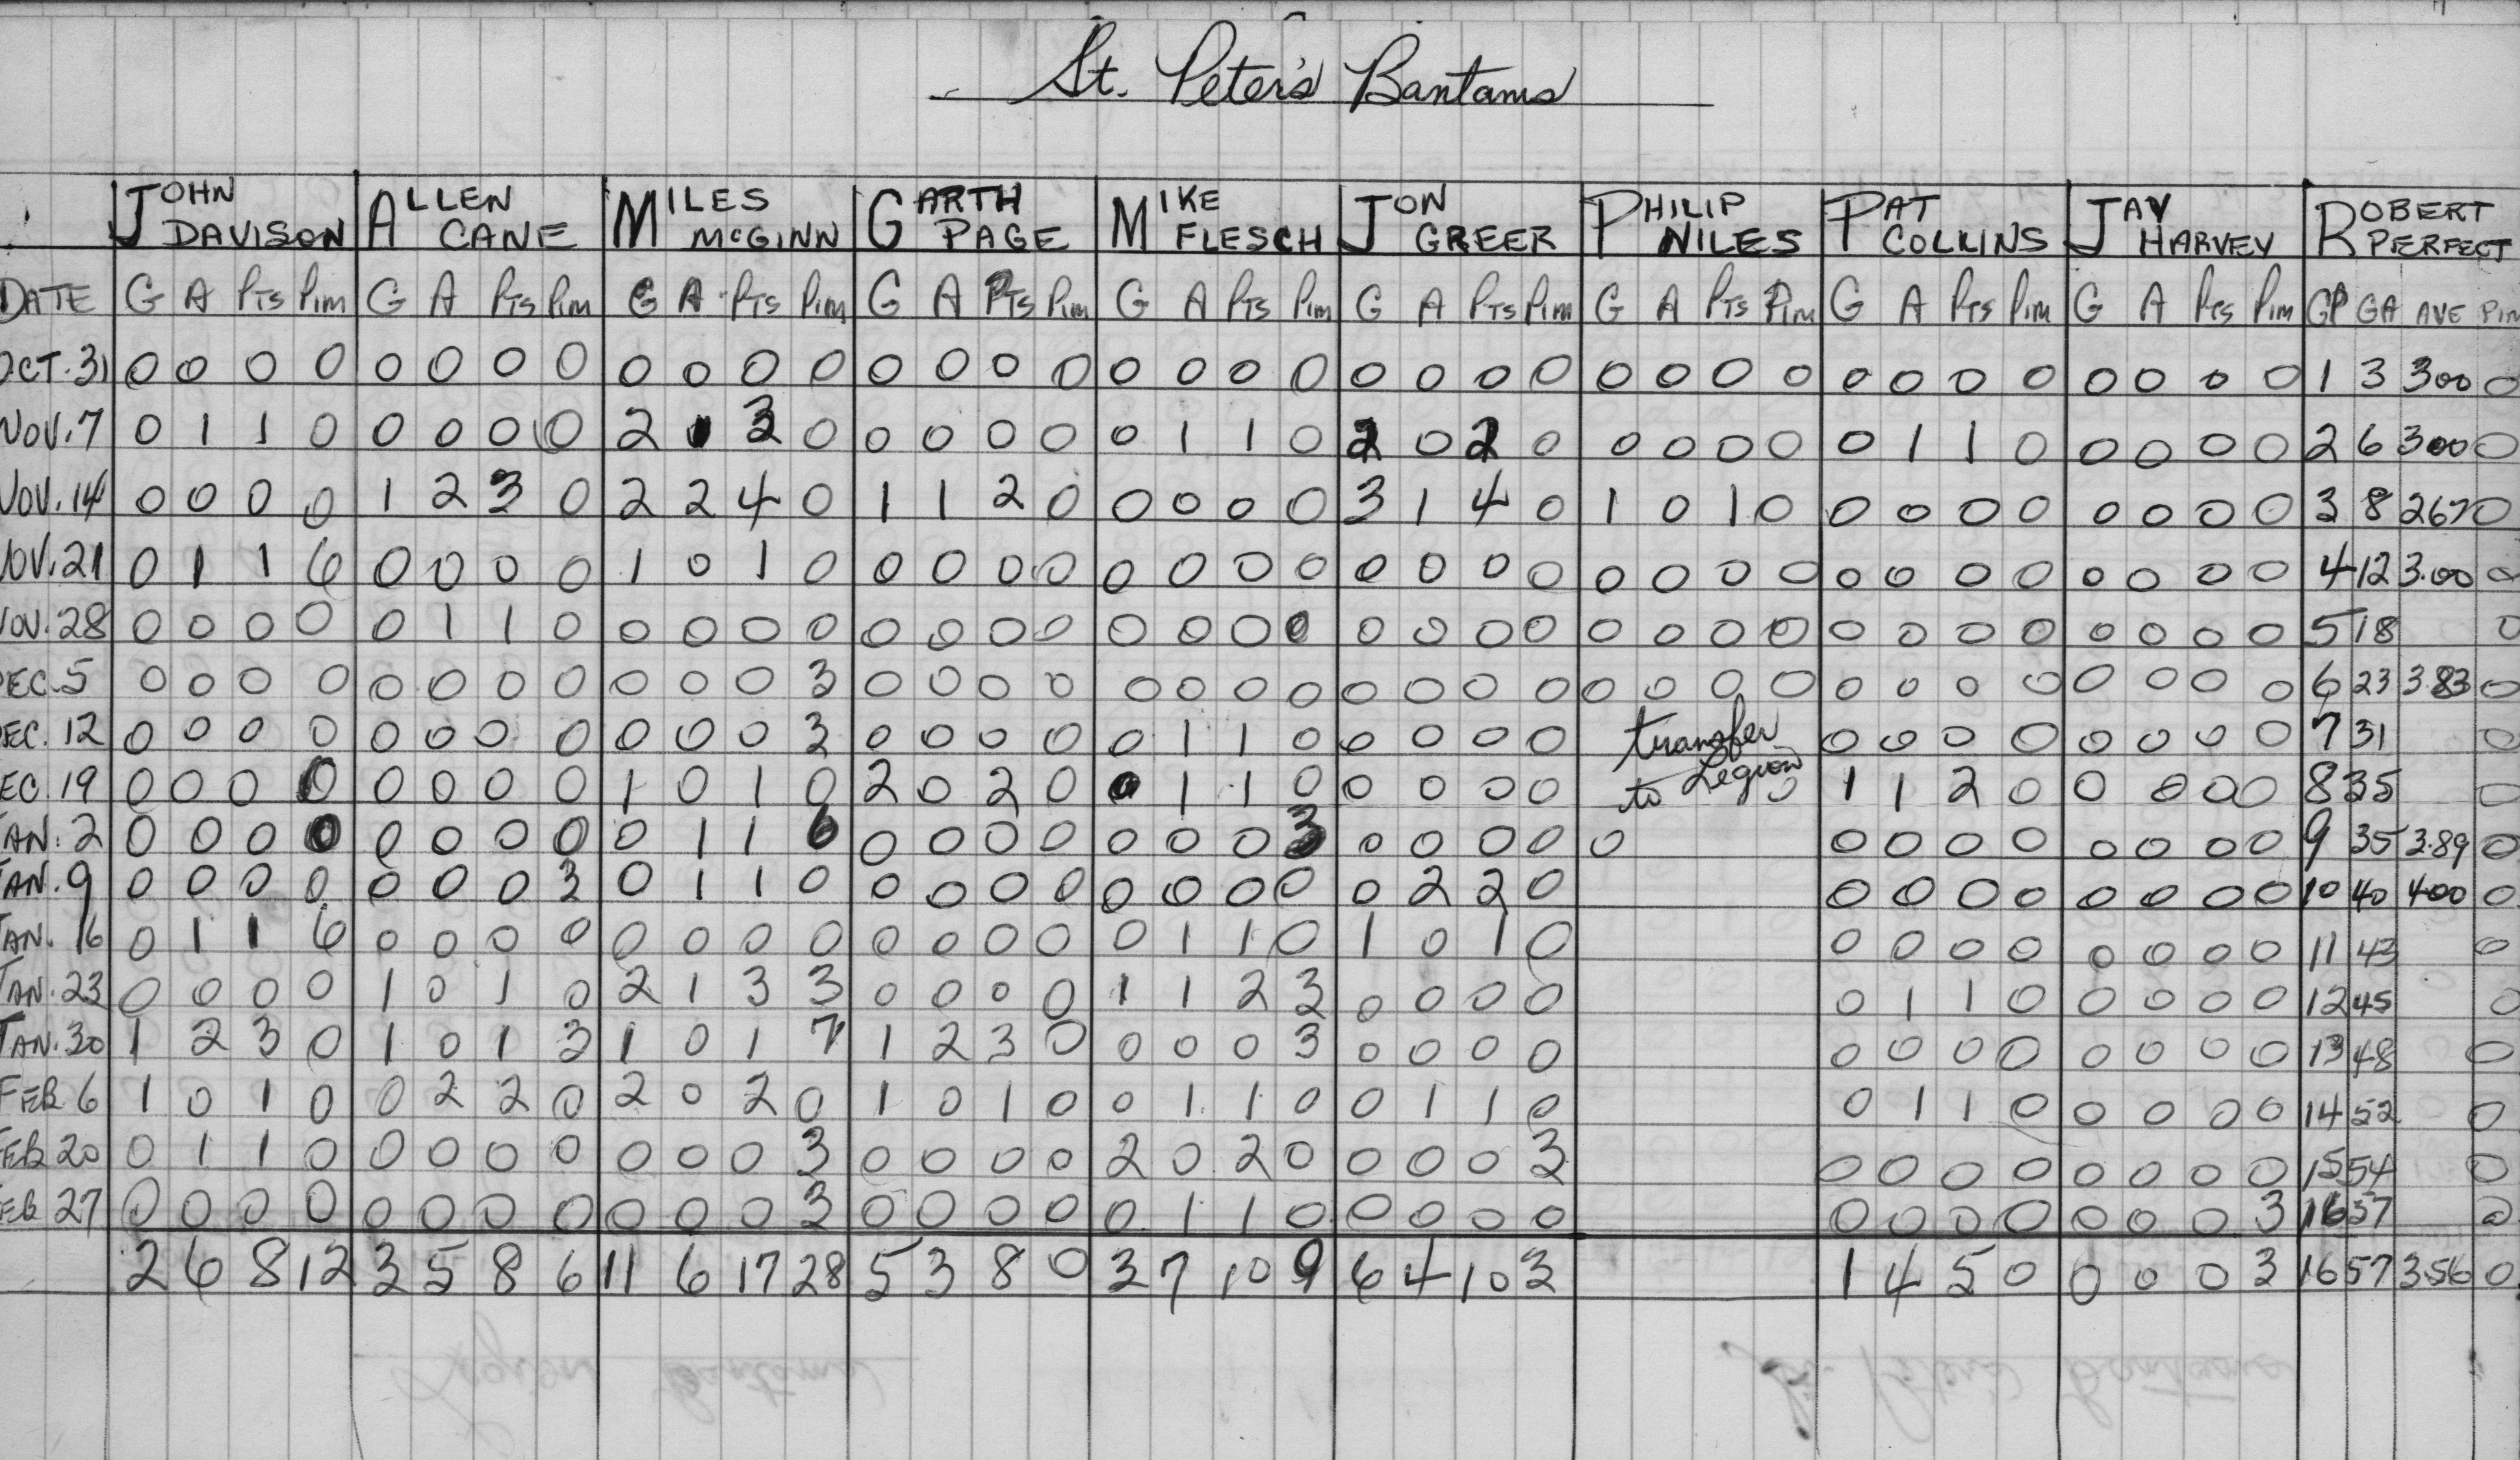 St. Peter's Bantams
JOHN DAVISON ALLEN CANE MILES McGINN GARTH PAGE MIKE FLESCH JON GREER PHILIP NILES PAT COLLINS JAY HARVEY ROBERT PERFECT
DATE G A Pts Pim G A Pts Pim G A Pts Pim G A Pts Pim G A Pts Pim G A Pts Pim G A Pts Pim G A Pts Pim G A Pts Pim GP GA AVE Pim
OCT. 31 0 0 0 0 0 0 0 0 0 0 0 0 0 0 0 0 0 0 0 0 0 0 0 0 0 0 0 0 0 0 0 0 0 0 0 0 1 3 300 0
NOV. 7 0 1 1 0 0 0 0 0 2 1 3 0 0 0 0 0 0 1 1 0 2 0 2 0 0 0 0 0 0 1 1 0 0 0 0 0 2 6 300 0
NOV. 14 0 0 0 0 1 2 3 0 2 2 4 0 1 1 2 0 0 0 0 0 3 1 4 0 1 0 1 0 0 0 0 0 0 0 0 0 3 8 267 0
NOV. 21 0 1 1 6 0 0 0 0 1 0 1 0 0 0 0 0 0 0 0 0 0 0 0 0 0 0 0 0 0 0 0 0 0 0 0 0 4 12 3.00 0
NOV. 28 0 0 0 0 0 1 1 0 0 0 0 0 0 0 0 0 0 0 0 0 0 0 0 0 0 0 0 0 0 0 0 0 0 0 0 0 5 18 0
DEC. 5 0 0 0 0 0 0 0 0 0 0 0 3 0 0 0 0 0 0 0 0 0 0 0 0 0 0 0 0 0 0 0 0 0 0 0 0 6 23 3.83 0
DEC. 12 0 0 0 0 0 0 0 0 0 0 0 3 0 0 0 0 0 1 1 0 0 0 0 0 transfer 0 0 0 0 0 0 0 0 7 31 0
DEC. 19 0 0 0 0 0 0 0 0 1 0 1 0 2 0 2 0 0 1 1 0 0 0 0 0 to Legion 0 1 1 2 0 0 0 0 0 8 35 0
JAN. 2 0 0 0 0 0 0 0 0 0 1 1 6 0 0 0 0 0 0 0 3 0 0 0 0 0 0 0 0 0 0 0 0 0 9 35 3.89 0
JAN. 9 0 0 0 0 0 0 0 3 0 1 1 0 0 0 0 0 0 0 0 0 0 2 2 0 0 0 0 0 0 0 0 0 10 40 400 0
JAN. 16 0 1 1 6 0 0 0 0 0 0 0 0 0 0 0 0 0 1 1 0 1 0 1 0 0 0 0 0 0 0 0 0 11 43 0
JAN. 23 0 0 0 0 1 0 1 0 2 1 3 3 0 0 0 0 1 1 2 3 0 0 0 0 0 1 1 0 0 0 0 0 12 45 0
JAN. 30 1 2 3 0 1 0 1 3 1 0 1 7 1 2 3 0 0 0 0 3 0 0 0 0 0 0 0 0 0 0 0 0 13 48 0
FEB 6 1 0 1 0 0 2 2 0 2 0 2 0 1 0 1 0 0 1 1 0 0 1 1 0 0 1 1 0 0 0 0 0 14 52 0
FEB 20 0 1 1 0 0 0 0 0 0 0 0 3 0 0 0 0 2 0 2 0 0 0 0 3 0 0 0 0 0 0 0 0 15 54 0
FEB 27 0 0 0 0 0 0 0 0 0 0 0 3 0 0 0 0 0 1 1 0 0 0 0 0 0 0 0 0 0 0 0 3 16 57 0
2 6 8 12 3 5 8 6 11 6 17 28 5 3 8 0 3 7 10 9 6 4 10 3 1 4 5 0 0 0 0 3 16 57 3.56 0